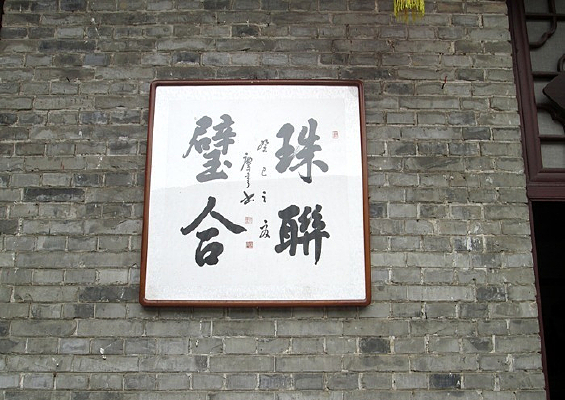 珠聯
璧合
癸巳之夏